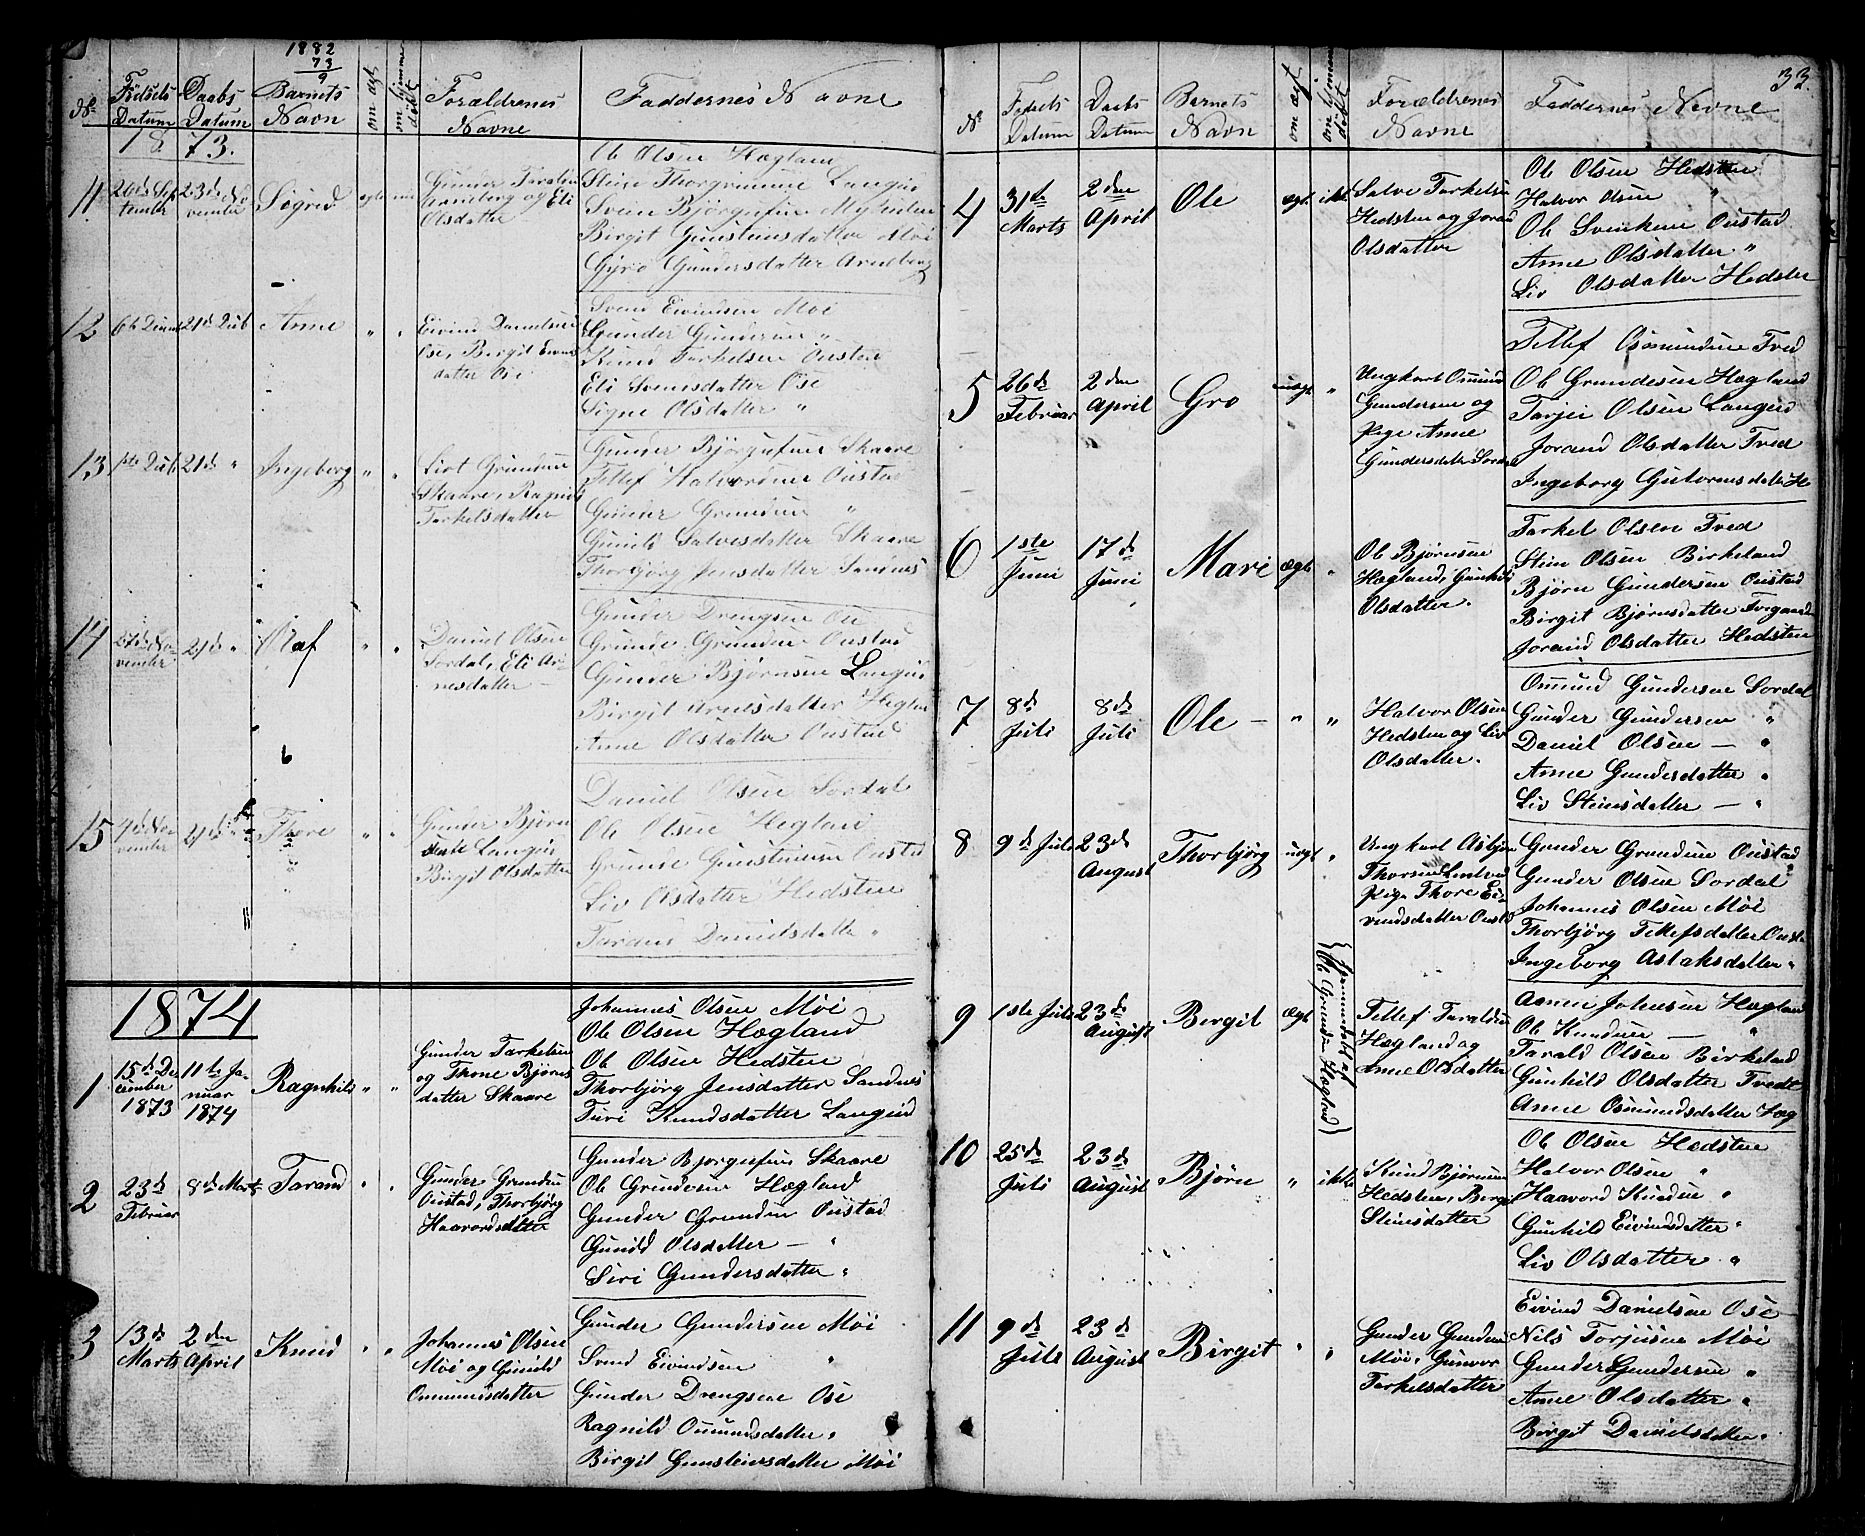 1882
73
9
No
Fødsels Datum
Daabs Datum
Barnets Navn
om ægt
om hjemme døbt
Forældrenes Navne
Faddernes Navne
1873.
11
26de September
23de November
Sigrid
Gunder Taraldsen
Olsdatter
Ole Olsen Hægland
Stein Thorgrimsen Langeid
Svein Bjørgufsen
Birgit Gunsteinsdatter Møi
Gyro Gundersdatter Arneberg
12
21de Dcb
Anne
"
"
Eivind Danielsen
Ose, Birgit Eivindsdatter Ose
Svend Eivindsen Møi
Gunder Gundersen "
Knud Tarkelsen Oustad
Eli Svensdatter Ose
Signe Olsdatter "
13
1ste Dcb
21de "
Ingeborg
"
"
Liot Grundesen
Skaare, Ragnild
Tarkelsdatter
Gunder Bjørgufsen Skaare
Tellef Halvorsen Oustad
Gunder Grundesen "
Gunild Salvesdatter Skaare
Thorbjørg Jensdatter Sandnes
14
27de November
21de "
Olaf
"
"
Daniel Olsen
Sordal, Eli Arnesdatter
Gunder Drengsen Ose
Grunde Grundesen Oustad
Gunder Bjørnsen Langeid
Birgit Arnesdatter Hegland
Anne Olsdatter Oustad
15
November
21de "
Thore
"
"
Gunder Bjørnsen
Langeid
Birgit Olsdatter
Daniel Olsen Sordal
Ole Olsen Hegland
Grunde Gunsteinsen Oustad
Liv Olsdatter Hedsten
Taran Danielsdatter "
1874
1
15de December 1873
11te Januar 1874
Ragnhild
"
"
Gunder Tarkelsen
og Thone Bjørnsdatter Skaare
Johannes Olsen Møi
Ole Olsen Hægland
Ole Olsen Hedsten
Thorbjørg Jensdatter Sandnes
Turi Knudsdatter Langeid
2
23de Februar
8de Marts
Tarand
"
"
Gunder Grundesen
Oustad, Thorbjørg
Haavordsdatter
Gunder Bjørgufsen Skaare
Ole Grundesen Hægland
Gunder Grundesen Oustad
Gunild Olsdatter — "
Siri Gundersdatter "
3
13de Marts
2den April
Knud
"
"
Johannes Olsen
Møi og Gunild
Ommundsdatter
Gunder Gundersen Møi
Svend Eivindsen "
Gunder Drengsen Ose
Ragnild Omundsdatter "
Birgit Gunsteinsdatter Møi
33.
No
Fødsels Datum
Daabs Datum
Barnets Navn
om ægt
om hjemmedøbt
Forældrenes Navne
Faddernes Navne
4
31te Marts
2den April
Ole
ægt
ikke
Salve Tarkelsen
Hedsten og Jorand
Olsdatter
Ole Olsen Hedsten
Halvor Olsen "
Ole Svenkesen Oustad
Anne Olsdatter "
Liv Olsdatter Hedsten
5
26de Februar
2den April
Gro
uægt
"
Ungkarl Omund
Gundersen og
Pige Anne
Gundersdatter Sordal
Tellef Osmundsen Tved
Ole Grundesen Hægland
Tarjei Olsen Langeid
Jorand Olsdatter Tved
Ingeborg Gutormsdatter H
6
1ste Juni
17de Juni
Mari
ægt
"
Ole Bjørnsen
Hægland, Gunhild
Olsdatter.
Tarkel Olsen Tved
Stein Olsen Birkeland
Bjørn Gundersen Oustad
Birgit Bjørnsdatter
Jorand Olsdatter Hedsten
7
8de Juli
8de Juli
Ole —
"
"
Halvor Olsen
Hedsten og Liv
Olsdatter.
Omund Gundersen Sordal
Gunder Gundersen "
Daniel Olsen — "
Anne Gundersdatter "
Liv Steinsdatter — "
8
9de Juli
23de August
Thorbjørg
uægt
"
Ungkarl Asbjørn
Pige Thore Eivindsdatter Oustd
Gunder Grundesen Oustad
Gunder Olsen Sordal
Johannes Olsen Møi
Thorbjørg Tellefsdatter Oustad
Ingeborg Aslaksdatter "
9
1ste Juli
23de August
Birgit
ægt
{Hjemmedøbt af
Ole Grundesen Hægland}
Tellef Taraldsen
Hægland og
Anne Olsdatter
Aanen Johnsen Hægland
Ole Knudsen — "
Tarald Olsen Birkeland
Gunhild Olsdatter Tvedt
Anne Osmundsdatter Hæg
10
25de Juli
23de August
Bjørn
"
ikke
Knud Bjørnsen
Hedsten, Bergit
Steinsdatter
Ole Olsen Hedsten
Halvor Olsen "
Haavord Knudsen "
Gunhild Eivindsdatter "
Liv Olsdatter "
11
9de Juli
23de August
Birgit
"
"
Gunder Gundersen
Møi, Gunvor
Tarkelsdatter
Eivind Danielsen Ose
Nils Torjusen Møi
Gunder Gundersen "
Anne Olsdatter "
Birgit Danielsdatter "